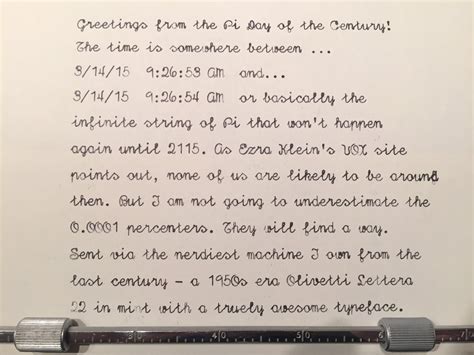 Greetings from the Pi Day of the Century!
The time is somewhere between ...
3/14/15 9:26:53 am and...
3/14/15 9:26:54 am or basically the
infinite string of Pi that won't happen
again until 2115. As Ezra Klein's VOX site
points out, none of us are likely to be around
then. But I am not going to underestimate the
0.0001 percenters. They will find a way.
Sent via the nerdiest machine I own from the
last century - a 1950s era Olivetti Lettera
22 in mint with a truely awesome typeface.